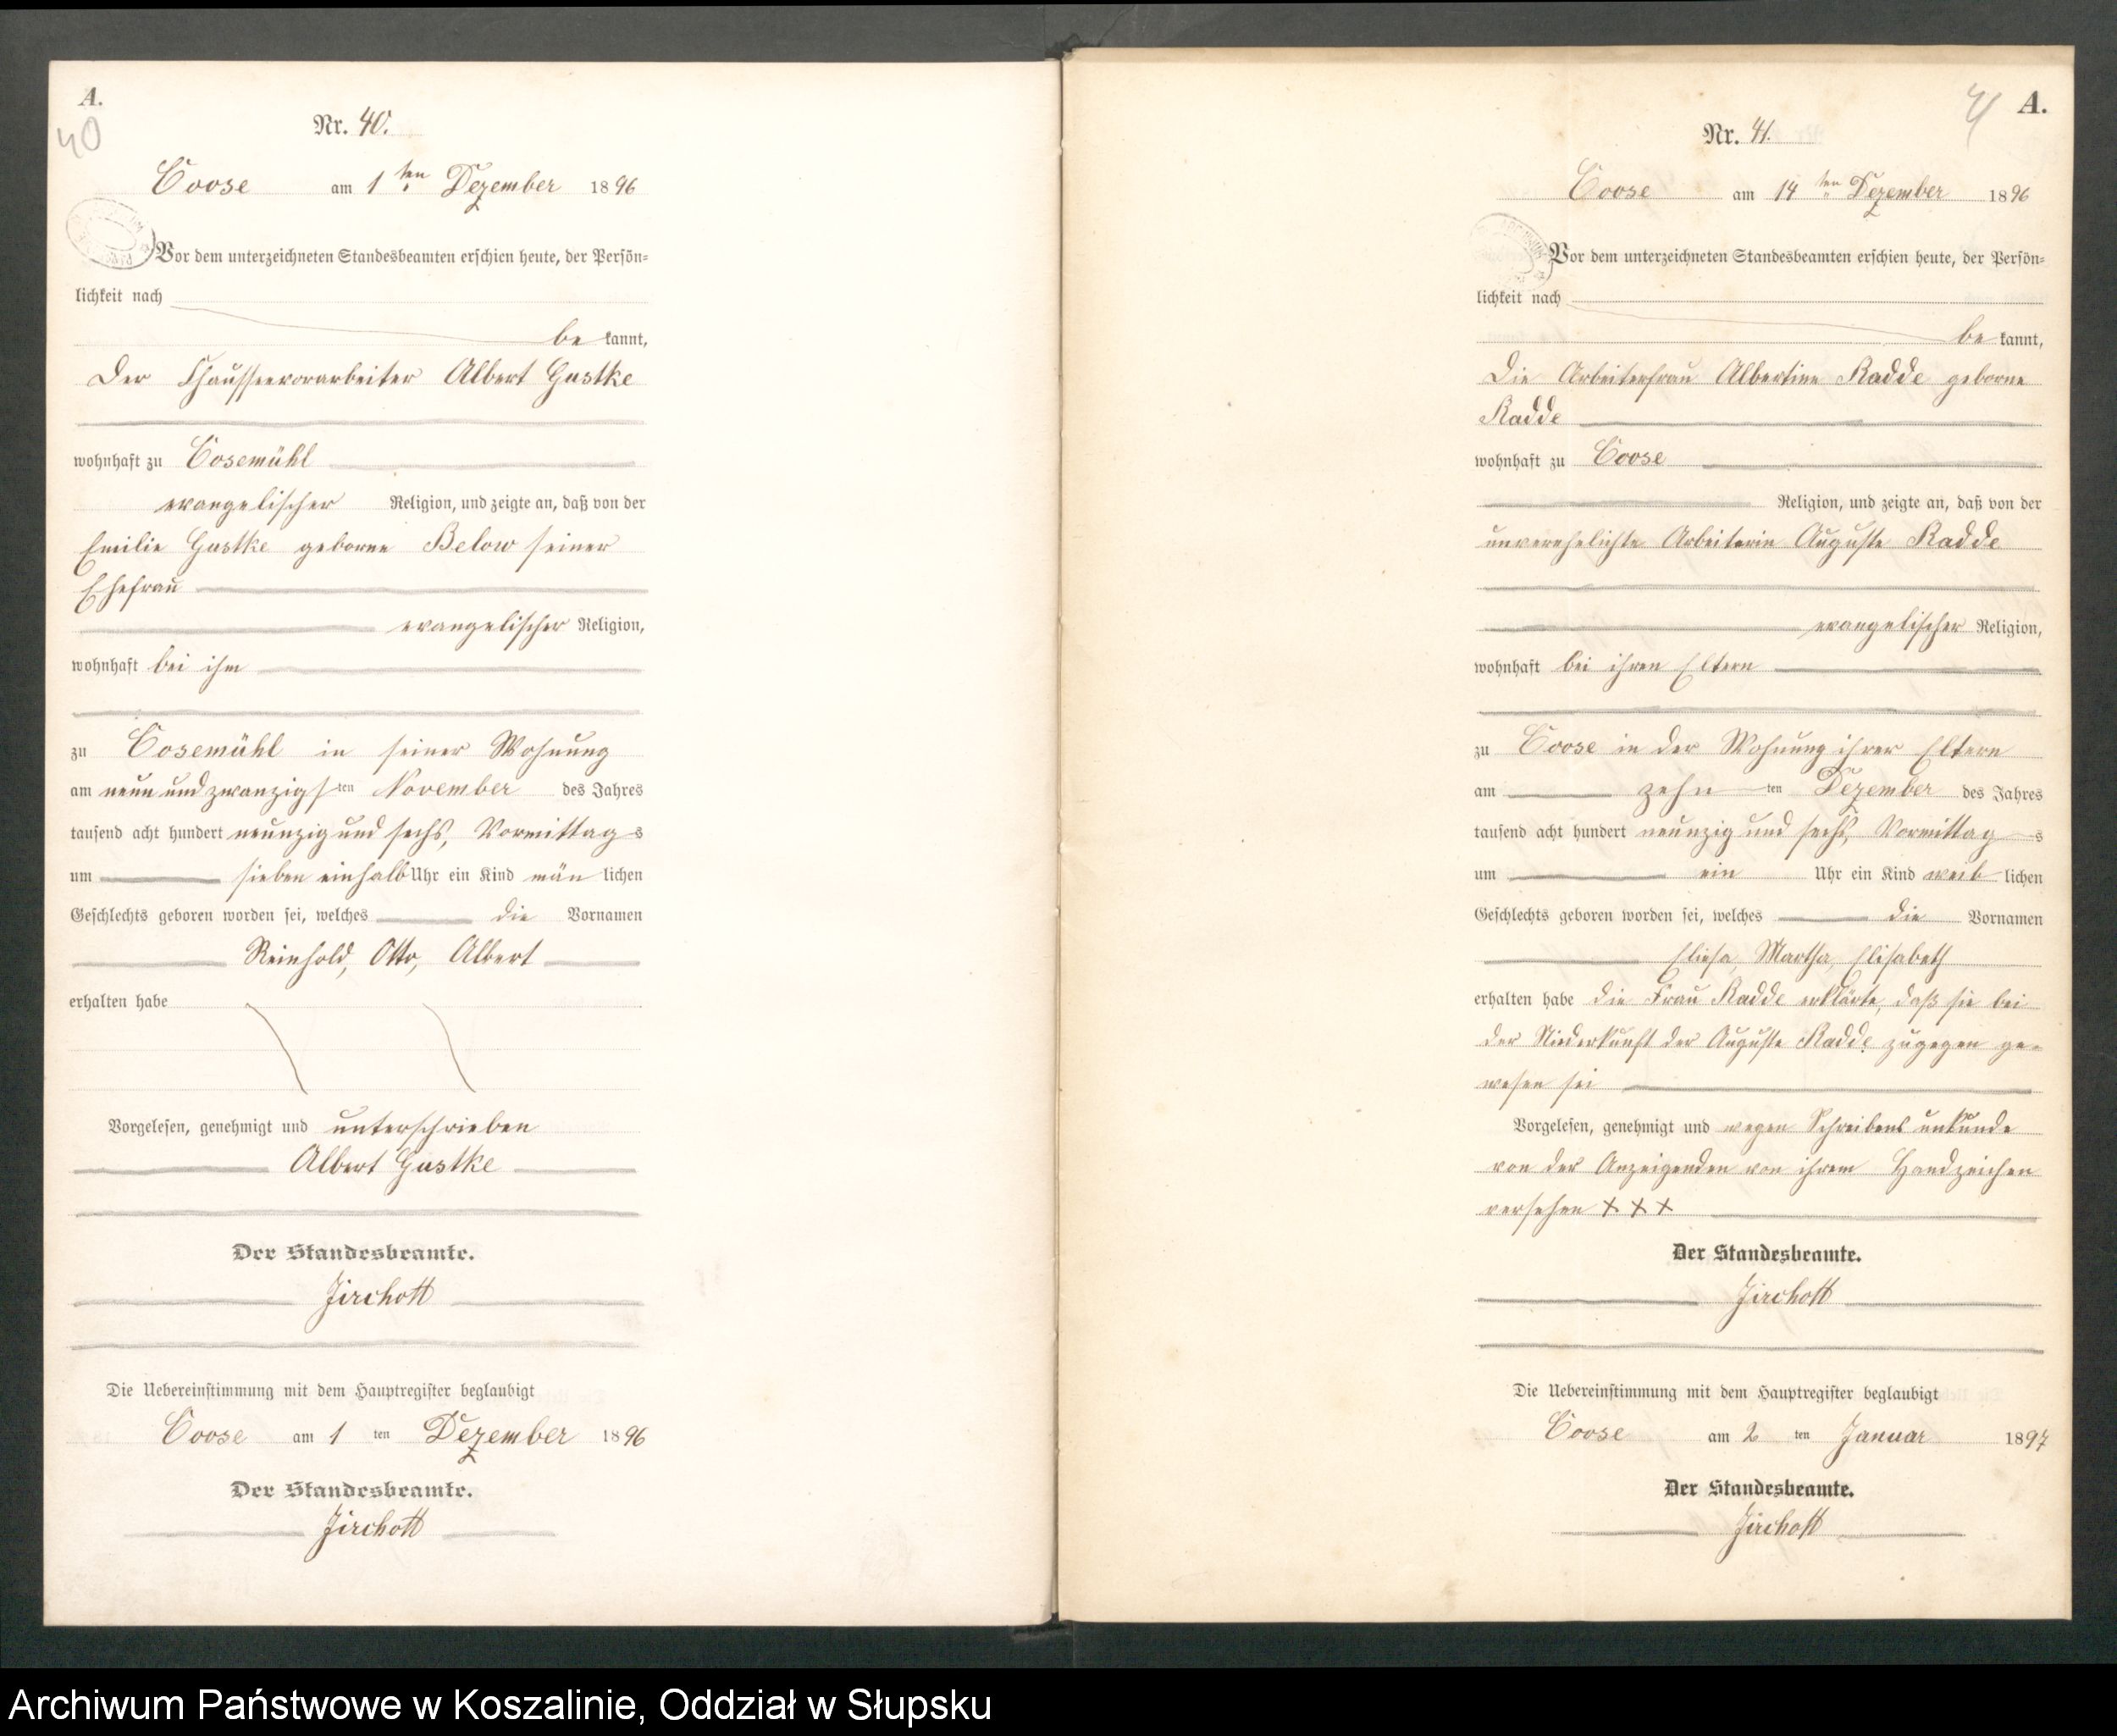 A.
40
Nr. 40.
Coose am 1 ten Dezember 1896
Vor dem unterzeichneten Standesbeamten erschien heute, der Persön=
lichkeit nach
be kannt,
Der Chausseevorarbeiter Albert Gustke
wohnhaft zu Cosemühl
evangelischer Religion, und zeigte an, daß von der
Emilie Gustke geborne Below seiner
Ehefrau
evangelischer Religion,
wohnhaft bei ihm
zu Cosemühl in seiner Wohnung
am neun und zwanzigs ten November des Jahres
tausend acht hundert neunzig und sechs, Vormittag s
um sieben einhalb Uhr ein Kind män lichen
Geschlechts geboren worden sei, welches die Vornamen
Reinhold, Otto, Albert
erhalten habe
Vorgelesen, genehmigt und unterschrieben
Albert Gustke
Der Standesbeamte.
Jirchott
Die Uebereinstimmung mit dem Hauptregister beglaubigt
Coose am 1 ten Dezember 1896
Der Standesbeamte.
Jirchott
41
A.
Nr. 41.
Coose am 14 ten Dezember 1896
Vor dem unterzeichneten Standesbeamten erschien heute, der Persön=
lichkeit nach
be kannt,
Die Arbeiterfrau Albertine Radde geborne
Radde
wohnhaft zu Coose
Religion, und zeigte an, daß von der
unverehelichte Arbeiterin Auguste Radde
evangelischer Religion,
wohnhaft bei ihren Eltern
zu Coose in der Wohnung ihrer Eltern
am zehn ten Dezember des Jahres
tausend acht hundert neunzig und sechs, Vormittag s
um ein Uhr ein Kind weib lichen
Geschlechts geboren worden sei, welches die Vornamen
Eliesa, Martha, Elisabeth
erhalten habe die Frau Radde erklärte, daß sie bei
der Niederkunft der Auguste Radde zugegen ge-
wesen sei
Vorgelesen, genehmigt und wegen Schreibens unkunde
von der Anzeigenden von ihrem Handzeichen
versehen + + +
Der Standesbeamte.
Jirchott
Die Uebereinstimmung mit dem Hauptregister beglaubigt
Coose am 2 ten Januar 1897
Der Standesbeamte.
Jirchott
Archiwum Państwowe w Koszalinie, Oddział w Słupsku